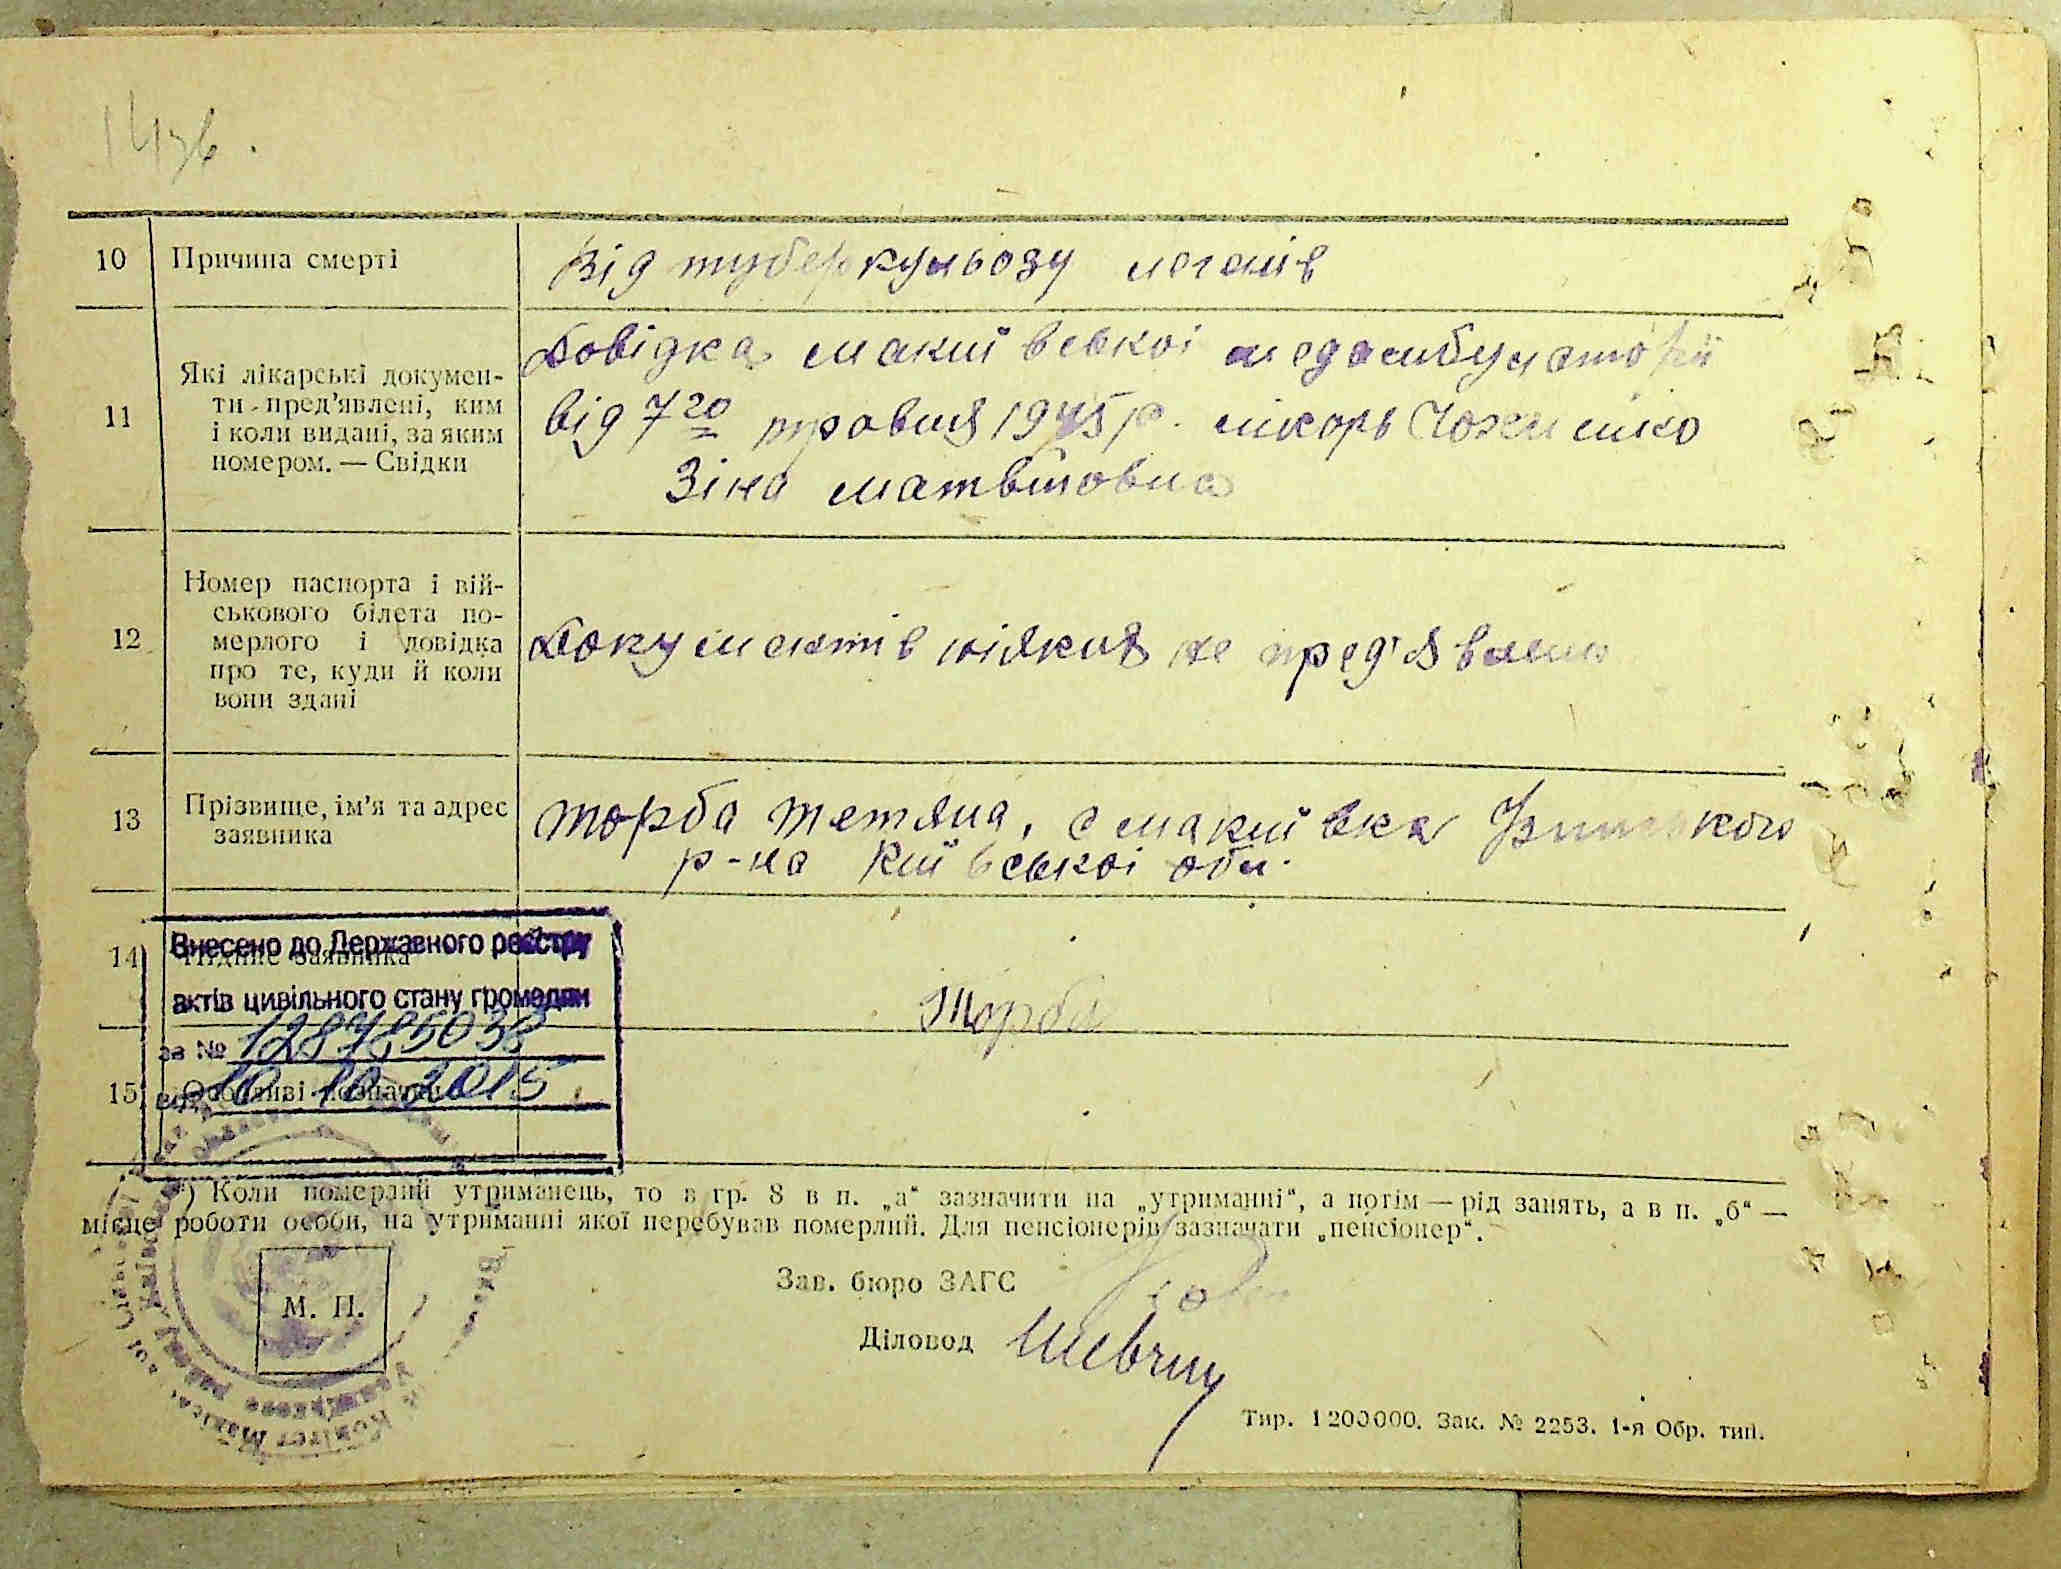 14зв.
10 Причина смерті Від туберкульозу легенів
11 Які лікарські докумен-
ти пред'явлені, ким
і коли видані, за яким
номером. — Свідки
Довідка макиївської медамбулаторії
від 7го травня 1945 р. лікарь
Зіна матвіївна
12 Номер паспорта і вій-
ськового білета по-
мерлого і довідка
про те, куди й коли
вони здані
Документів ніяких не пред'явлено
13 Прізвище, ім'я та адрес
заявника
Торба Тетяна, с макиївка кого
р-на Київської обл.
14 Підпис заявника
Торба
15 Особливі зазначки
Внесено до Державного реєстру
актів цивільного стану громадян
за № 128785038
від 10.10.2015
*) Коли померлий утриманець, то в гр. 8 в п. „а“ зазначити на „утриманні“, а потім — рід занять, а в п. „б“ —
місце роботи особи, на утриманні якої перебував померлий. Для пенсіонерів зазначати „пенсіонер“.
Зав. бюро ЗАГС
Діловод Шевчук
М. П.
Тир. 1200000. Зак. № 2253. 1-я Обр. тип.